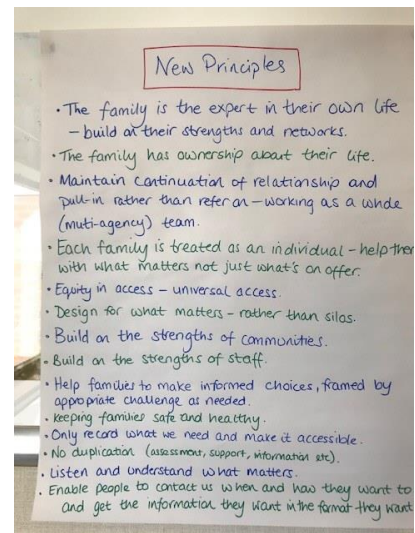 New Principles
• The family is the expert in their own life
– build on their strengths and networks.
• The family has ownership about their life.
• Maintain continuation of relationship and
pull-in rather than refer on – working as a whole
(muti-agency) team.
• Each family is treated as an individual – help them
with what matters not just what's on offer.
• Equity in access – universal access.
• Design for what matters – rather than silos.
• Build on the strengths of communities.
• Build on the strengths of staff.
• Help families to make informed choices, framed by
appropriate challenge as needed.
• Keeping families safe and healthy.
• Only record what we need and make it accessible.
• No duplication (assessment, support, information etc).
• Listen and understand what matters.
• Enable people to contact us when and how they want to
and get the information they want in the format they want